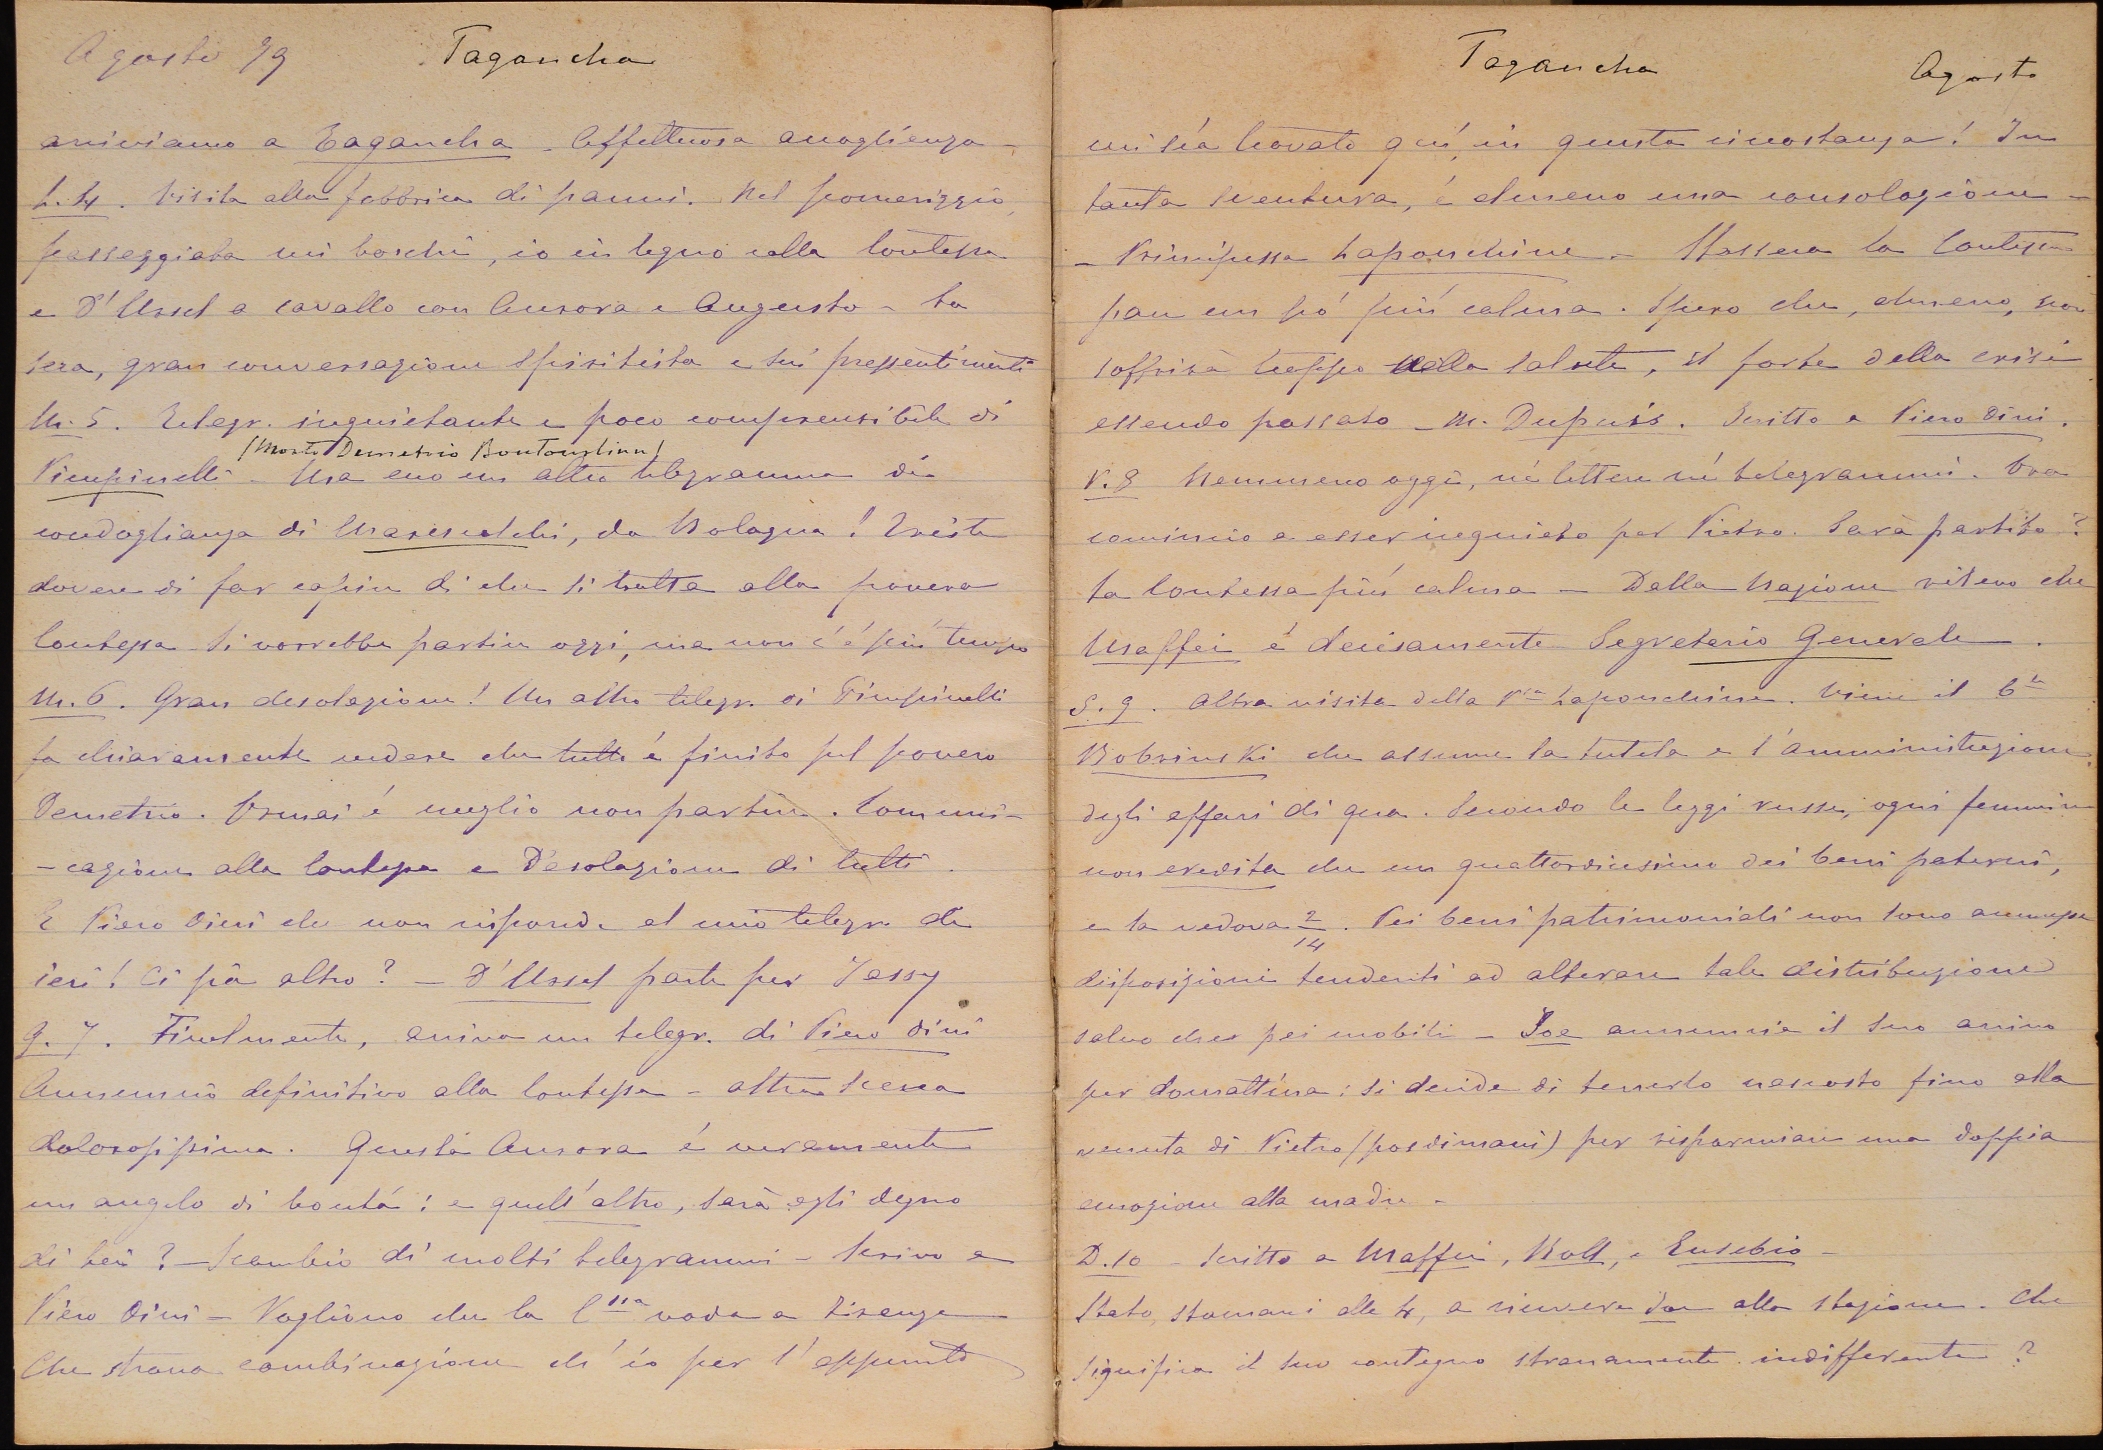 Agosto 79 Tagancha
arriviamo a Tagancha - Affettuosa accoglienza -
L. 4. Visita alla fabbrica di panni. Nel pomeriggio,
passeggiata nei boschi, io in legno colla Contessa
e D'Ussel a cavallo con Aurora e Augusto - La
sera, gran conversazione Spiritista e sui pressentimenti
M. 5. Telegr. inquietante e poco comprensibile di
(Morte Demetrio Boutourline)
Pimpinelli - Ma ecco un altro telegramma di
condoglianza di Marescalchi, da Bologna! Triste
dovere di far capire di che si tratta alla povera
Contessa. Si vorrebbe partire oggi, ma non c'è più tempo
M. 6. Gran desolazione! Un altro telegr. di Pimpinelli
fa chiaramente vedere che tutto è finito pel povero
Demetrio. Ormai è meglio non partire. Comuni-
-cazione alla Contessa e Desolazione di tutti.
E Piero Dini che non risponde al mio telegr. di
ieri! Ci fia altro? - D'Ussel parte per Jassy
G. 7. Finalmente, arriva un telegr. di Piero Dini
Annunzio definitivo alla Contessa - altra scena
dolorosissima. Questa Aurora è veramente
un angelo di bontà; e quell'altro, sarà egli degno
di lei? - Scambio di molti telegrammi - Scrivo a
Piero Dini - Vogliono che la C.ssa vada a Firenze
Che strana combinazione ch'io per l'appunto
Tagancha Agosto
mi sia trovato quì, in questa circostanza! In
tanta sventura, è almeno una consolazione -
- Principessa Lapouchine - Stassera la Contessa
pare un pó più calma. Spero che, almeno, non
soffrirà troppo nella salute, il forte della crisi
essendo passato - M. Dupuis. Scritto a Piero Dini.
V. 8 Nemmeno oggi, nè lettere nè telegrammi. Ora
comincio a esser inquieto per Pietro. Sarà partito?
La Contessa più calma - Dalla Nazione rilevo che
Maffei è decisamente Segretario Generale.
S. 9. Altra visita della P.ssa Lapouchine. Viene il C.te
Bobrinski che assume la tutela e l'amministrazione
degli affari di qua. Secondo le leggi russe, ogni femmina
non eredita che un quattordicesimo dei beni paterni,
e la vedova 2/14. Pei beni patrimoniali non sono ammesse
disposizioni tendenti ad alterare tale distribuzione
salvo che pei mobili - Joe annunzia il suo arrivo
per domattina: si decide di tenerlo nascosto fino alla
venuta di Pietro (posdimani) per risparmiare una doppia
emozione alla madre -
D. 10 - Scritto a Maffei, Noll, e Eusebio -
Stato, stamani alle 4, a ricevere Joe alla stazione. Che
significa il suo contegno stranamente indifferente?